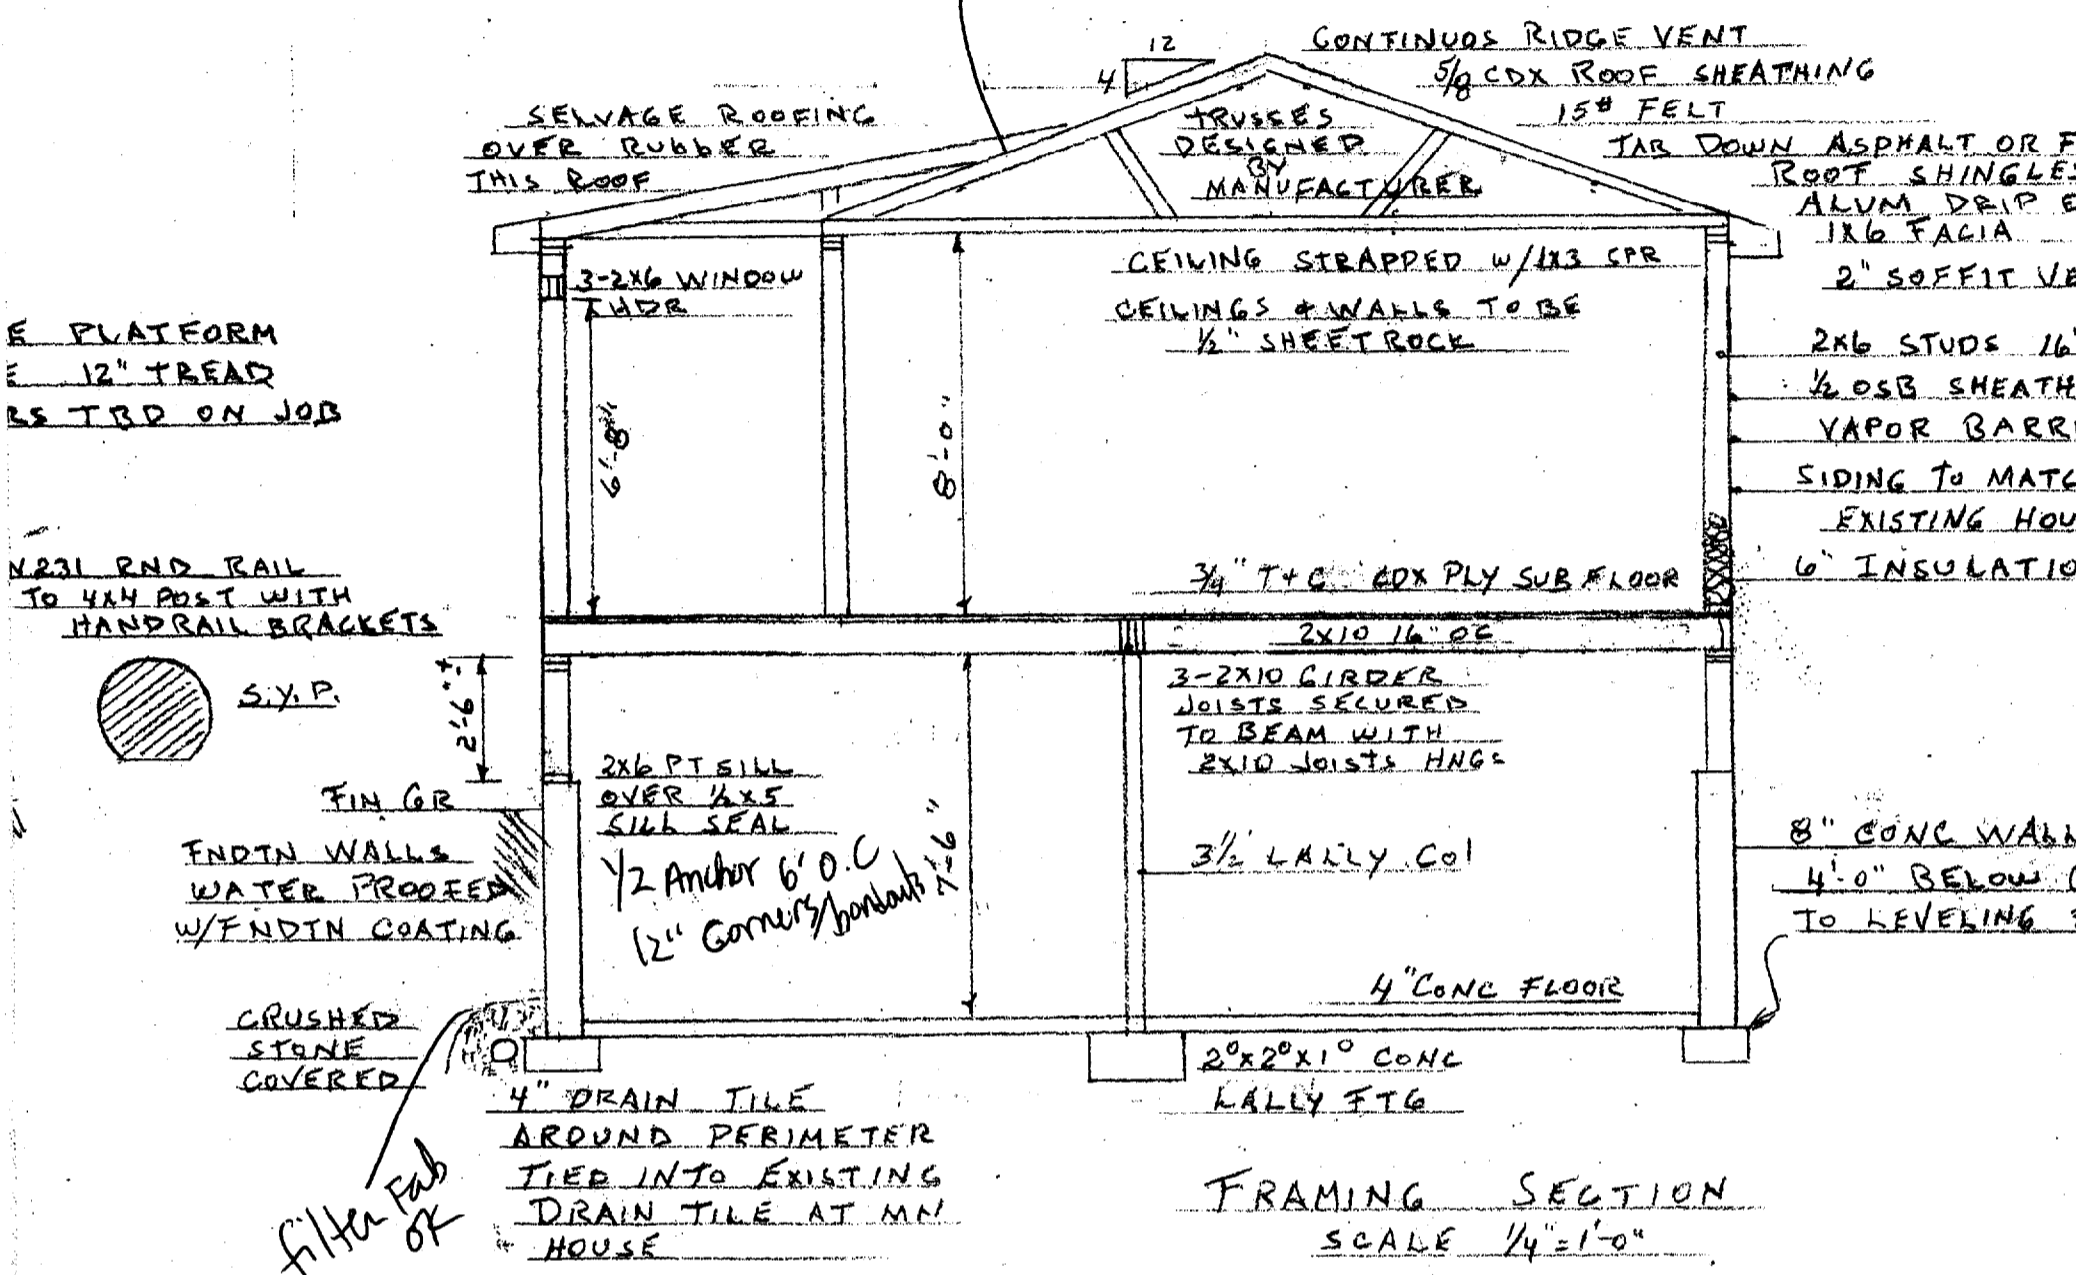 12
4
CONTINUOS RIDGE VENT
5/8 CDX ROOF SHEATHING
15# FELT
TAB DOWN ASPHALT OR F
ROOF SHINGLES
ALUM DRIP E
1X6 FACIA
2" SOFFIT VE
SELVAGE ROOFING
OVER RUBBER
THIS ROOF
TRUSSES
DESIGNED
BY
MANUFACTURER
3-2X6 WINDOW
HDR
CEILING STRAPPED W/1X3 SPR
CEILINGS & WALLS TO BE
1/2" SHEETROCK
E PLATFORM
E 12" TREAD
RS TBD ON JOB
6'-8"
8'-0"
2X6 STUDS 16"
1/2 OSB SHEATH
VAPOR BARRI
SIDING TO MATC
EXISTING HOU
6" INSULATIO
N231 RND RAIL
TO 4X4 POST WITH
HANDRAIL BRACKETS
S.Y.P.
3/4" T+G CDX PLY SUB FLOOR
2X10 16" OC
2'-6" ±
3-2X10 GIRDER
JOISTS SECURED
TO BEAM WITH
2X10 JOISTS HNGS
FIN GR
FNDTN WALLS
WATER PROOFED
W/FNDTN COATING
2X6 PT SILL
OVER 1/2 X5
SILL SEAL
1/2 Anchor 6' O.C
12" Corners/
7'-6"
3 1/2 LALLY COl
8" CONC WALL
4'-0" BELOW G
TO LEVELING
4" CONC FLOOR
CRUSHED
STONE
COVERED
filter Fab
OK
4" DRAIN TILE
AROUND PERIMETER
TIED INTO EXISTING
DRAIN TILE AT MN
HOUSE
2⁰X2⁰X1⁰ CONC
LALLY FTG
FRAMING SECTION
SCALE 1/4"=1'-0"